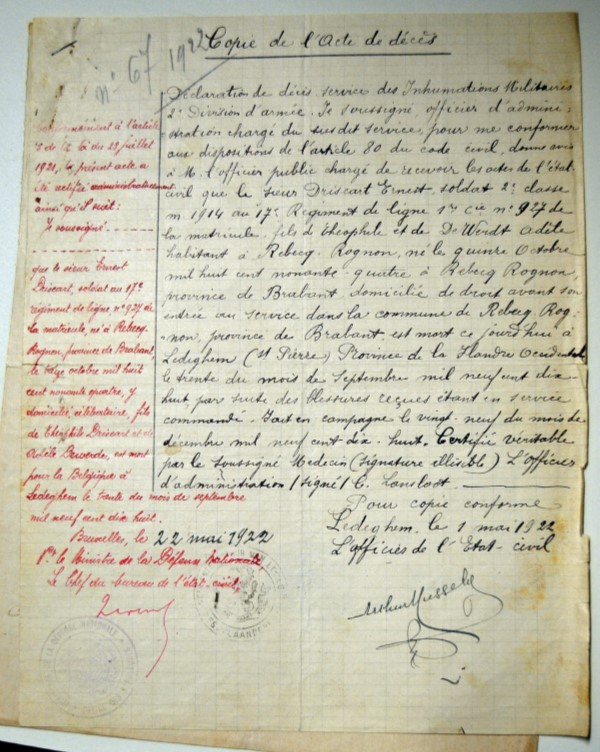 n° 67 1922
Copie de l'Acte de décès
Déclaration de décès service des Inhumations Militaires
2e Division d'armée. Je soussigné, officier d'admini-
stration chargé du susdit service, pour me conformer
aux dispositions de l'article 80 du code civil, donne avis
à M. l'officier public chargé de recevoir les actes de l'état-
civil que le sieur Driscart Ernest, soldat 2e classe
m 1914 au 17e Regiment de ligne 1re Cie n° 927 de
la matricule, fils de théophile et de De Weirdt Adèle
habitant à Rebecq. Rognon, né le quinze Octobre
mil huit cent nonante quatre à Rebecq Rognon,
province de Brabant, domicilié de droit avant son
entrée au service dans la commune de Rebecq Rog-
non, province de Brabant, est mort ce jourd'hui à
Ledeghem (St Pierre) Province de la Flandre Occidentale
le trente du mois de Septembre mil neuf cent dix
huit par suite des blessures reçues étant en service
commandé. Fait en campagne le vingt neuf du mois de
décembre mil neuf cent dix. huit. Certifié véritable
par le soussigné Medecin (signature illisible) L'officier
d'administration (signé) C.
Pour copie conforme
Ledeghem, le 1 mai 1922
L'officier de l'Etat-civil
Conformément à l'article
5 de la loi du 28 juillet
1921, le présent acte a
été rectifié administrativement
ainsi qu'il suit:
Je soussigné
que le sieur Ernest
Driscart, soldat au 17e
régiment de ligne, n° 927 de
la matricule, né à Rebecq-
Rognon, province de Brabant,
le treize octobre mil huit
cent nonante quatre, y
domicilié, célibataire, fils
de Théophile Driscart et de
Adèle, est mort
pour la Belgique à
Ledeghem le trente du mois de septembre
mil neuf cent dix huit.
Bruxelles, le 22 mai 1922
Pr le Ministre de la Défense Nationale
Le Chef du bureau de l'état-civil,